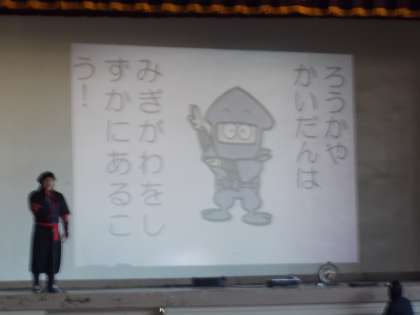 ろうかや
かいだんは
みぎがわをし
ずかにあるこ
う！